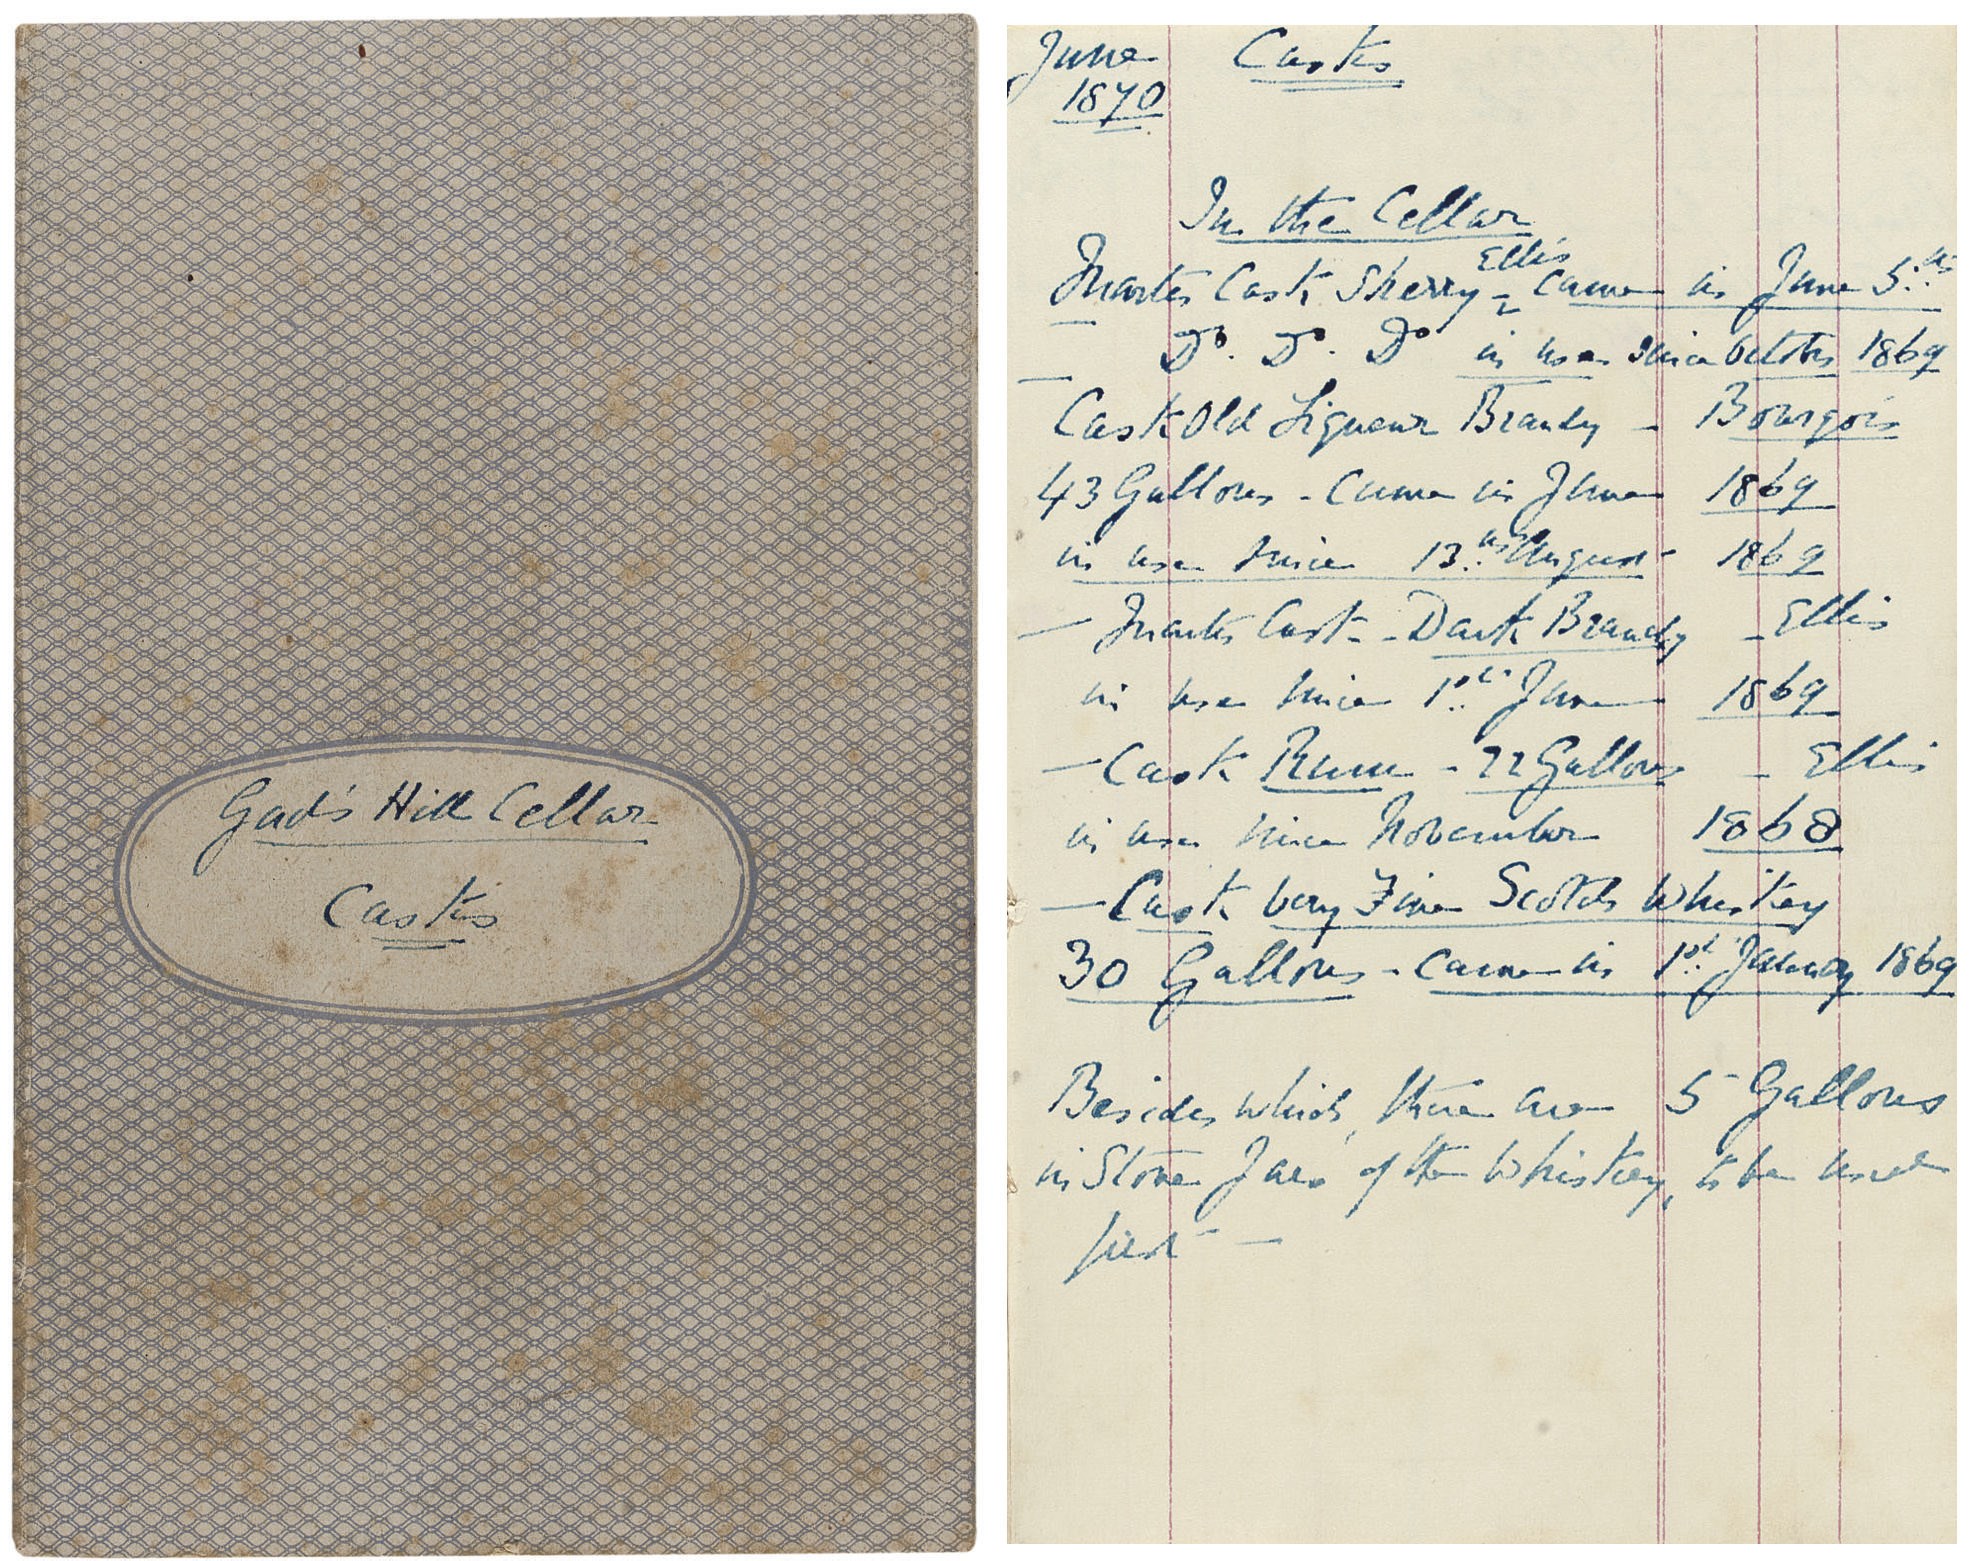 Gad's Hill Cellar
Casks
June Casks
1870
In the Cellar
Ellis
Quarter Cask Sherry - came in June 5th
Do. Do. Do in use since October 1869
Cask Old Liqueur Brandy - Bourgois
43 Gallons - Came in June 1869
in use since 13th August 1869
- Quarter Cask - Dark Brandy - Ellis
in use since 1st June 1869
- Cask Rum - 22 Gallons - Ellis
in use since November 1868
- Cask very Fine Scotch Whiskey
30 Gallons - came in 1st January 1869
Besides which, there are 5 Gallons
in Stone Jars of the Whiskey, to be used
first -